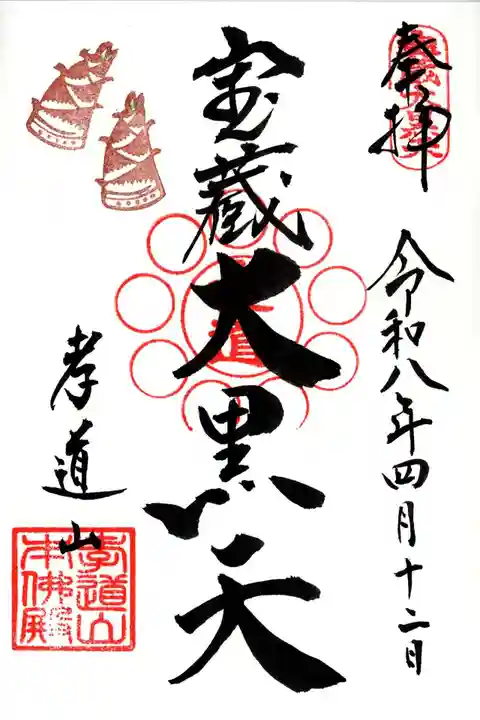 奉拝
令和八年四月十二日
宝蔵大黒天
孝道山
孝道山
本佛殿